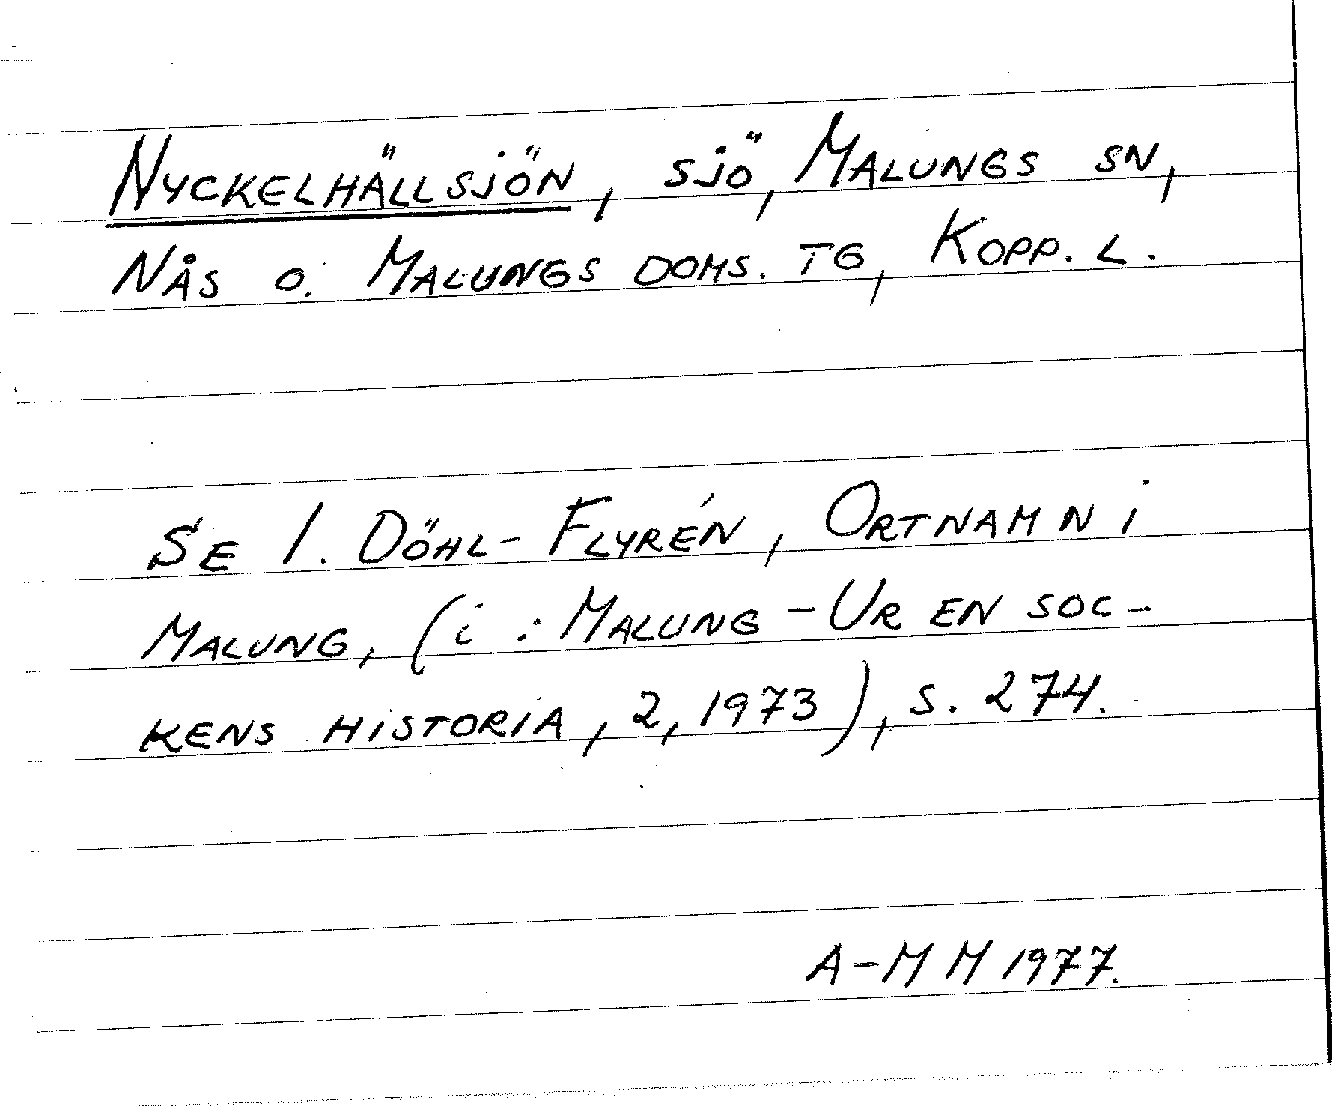 NYCKELHÄLLSJÖN, SJÖ, MALUNGS SN,
NÅS O. MALUNGS DOMS. TG, KOPP. L.
SE I. DÖHL-FLYRÉN, ORTNAMN i
MALUNG, (i: MALUNG – UR EN SOC-
KENS HISTORIA, 2, 1973), S. 274.
A-MM 1977.